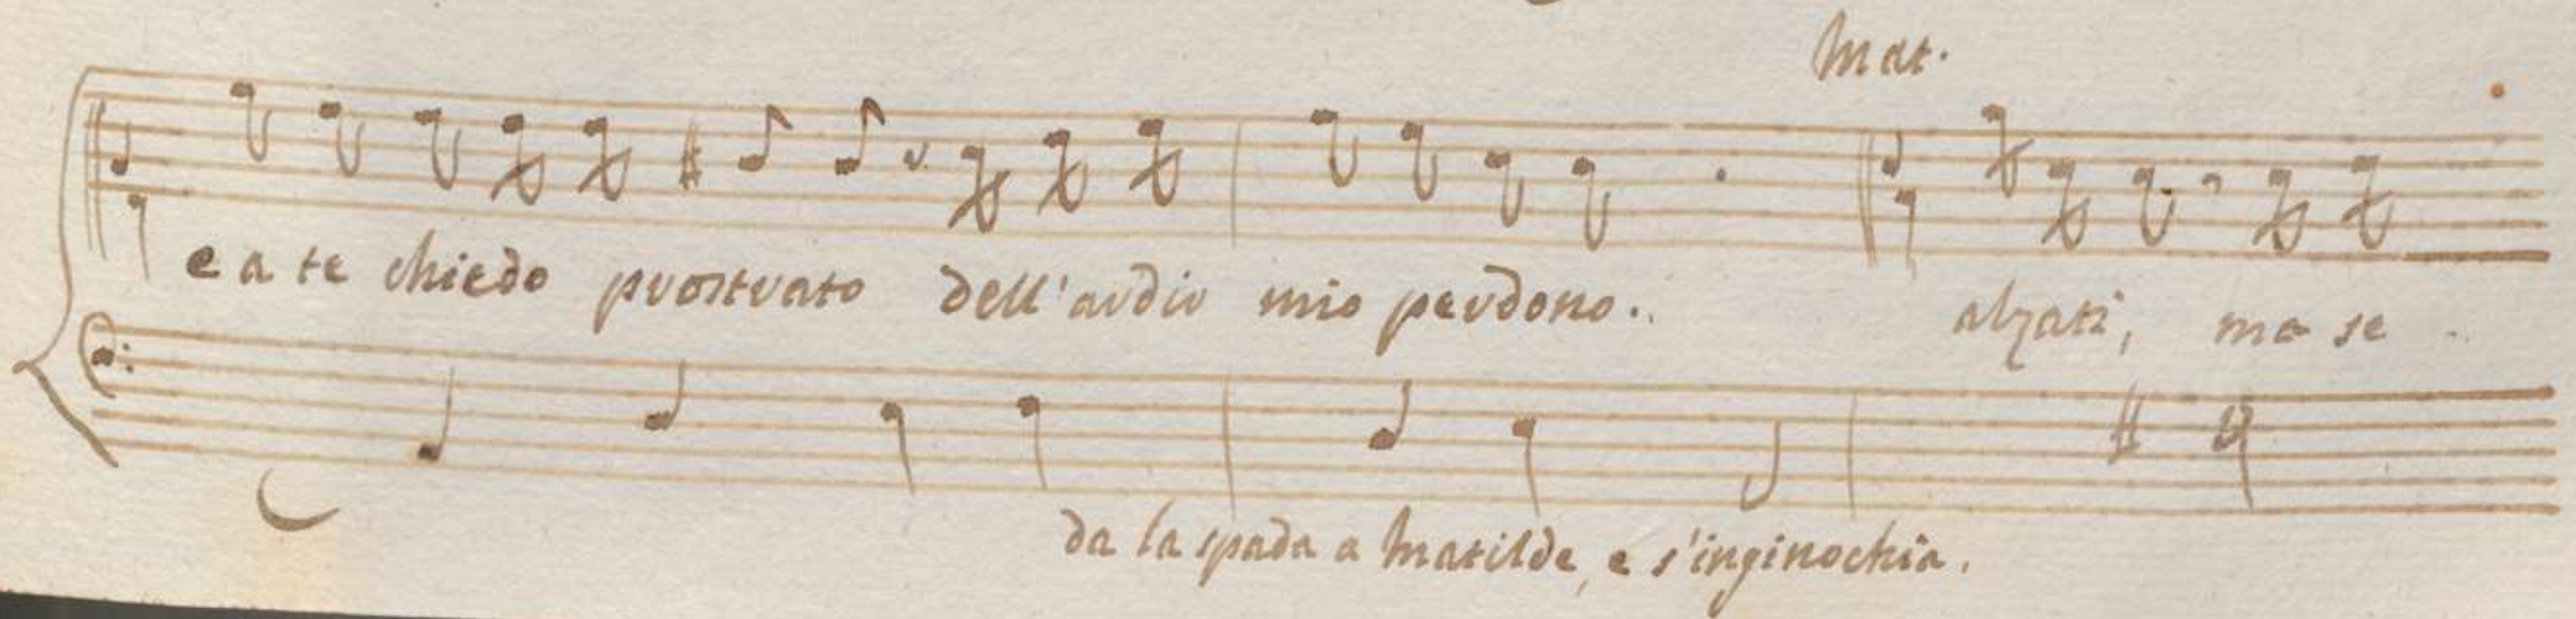 Mat.
e a te chiedo prostrato dell'ardir mio perdono.. alzati, ma se ..
da la spada a Matilde, e s'inginochia.